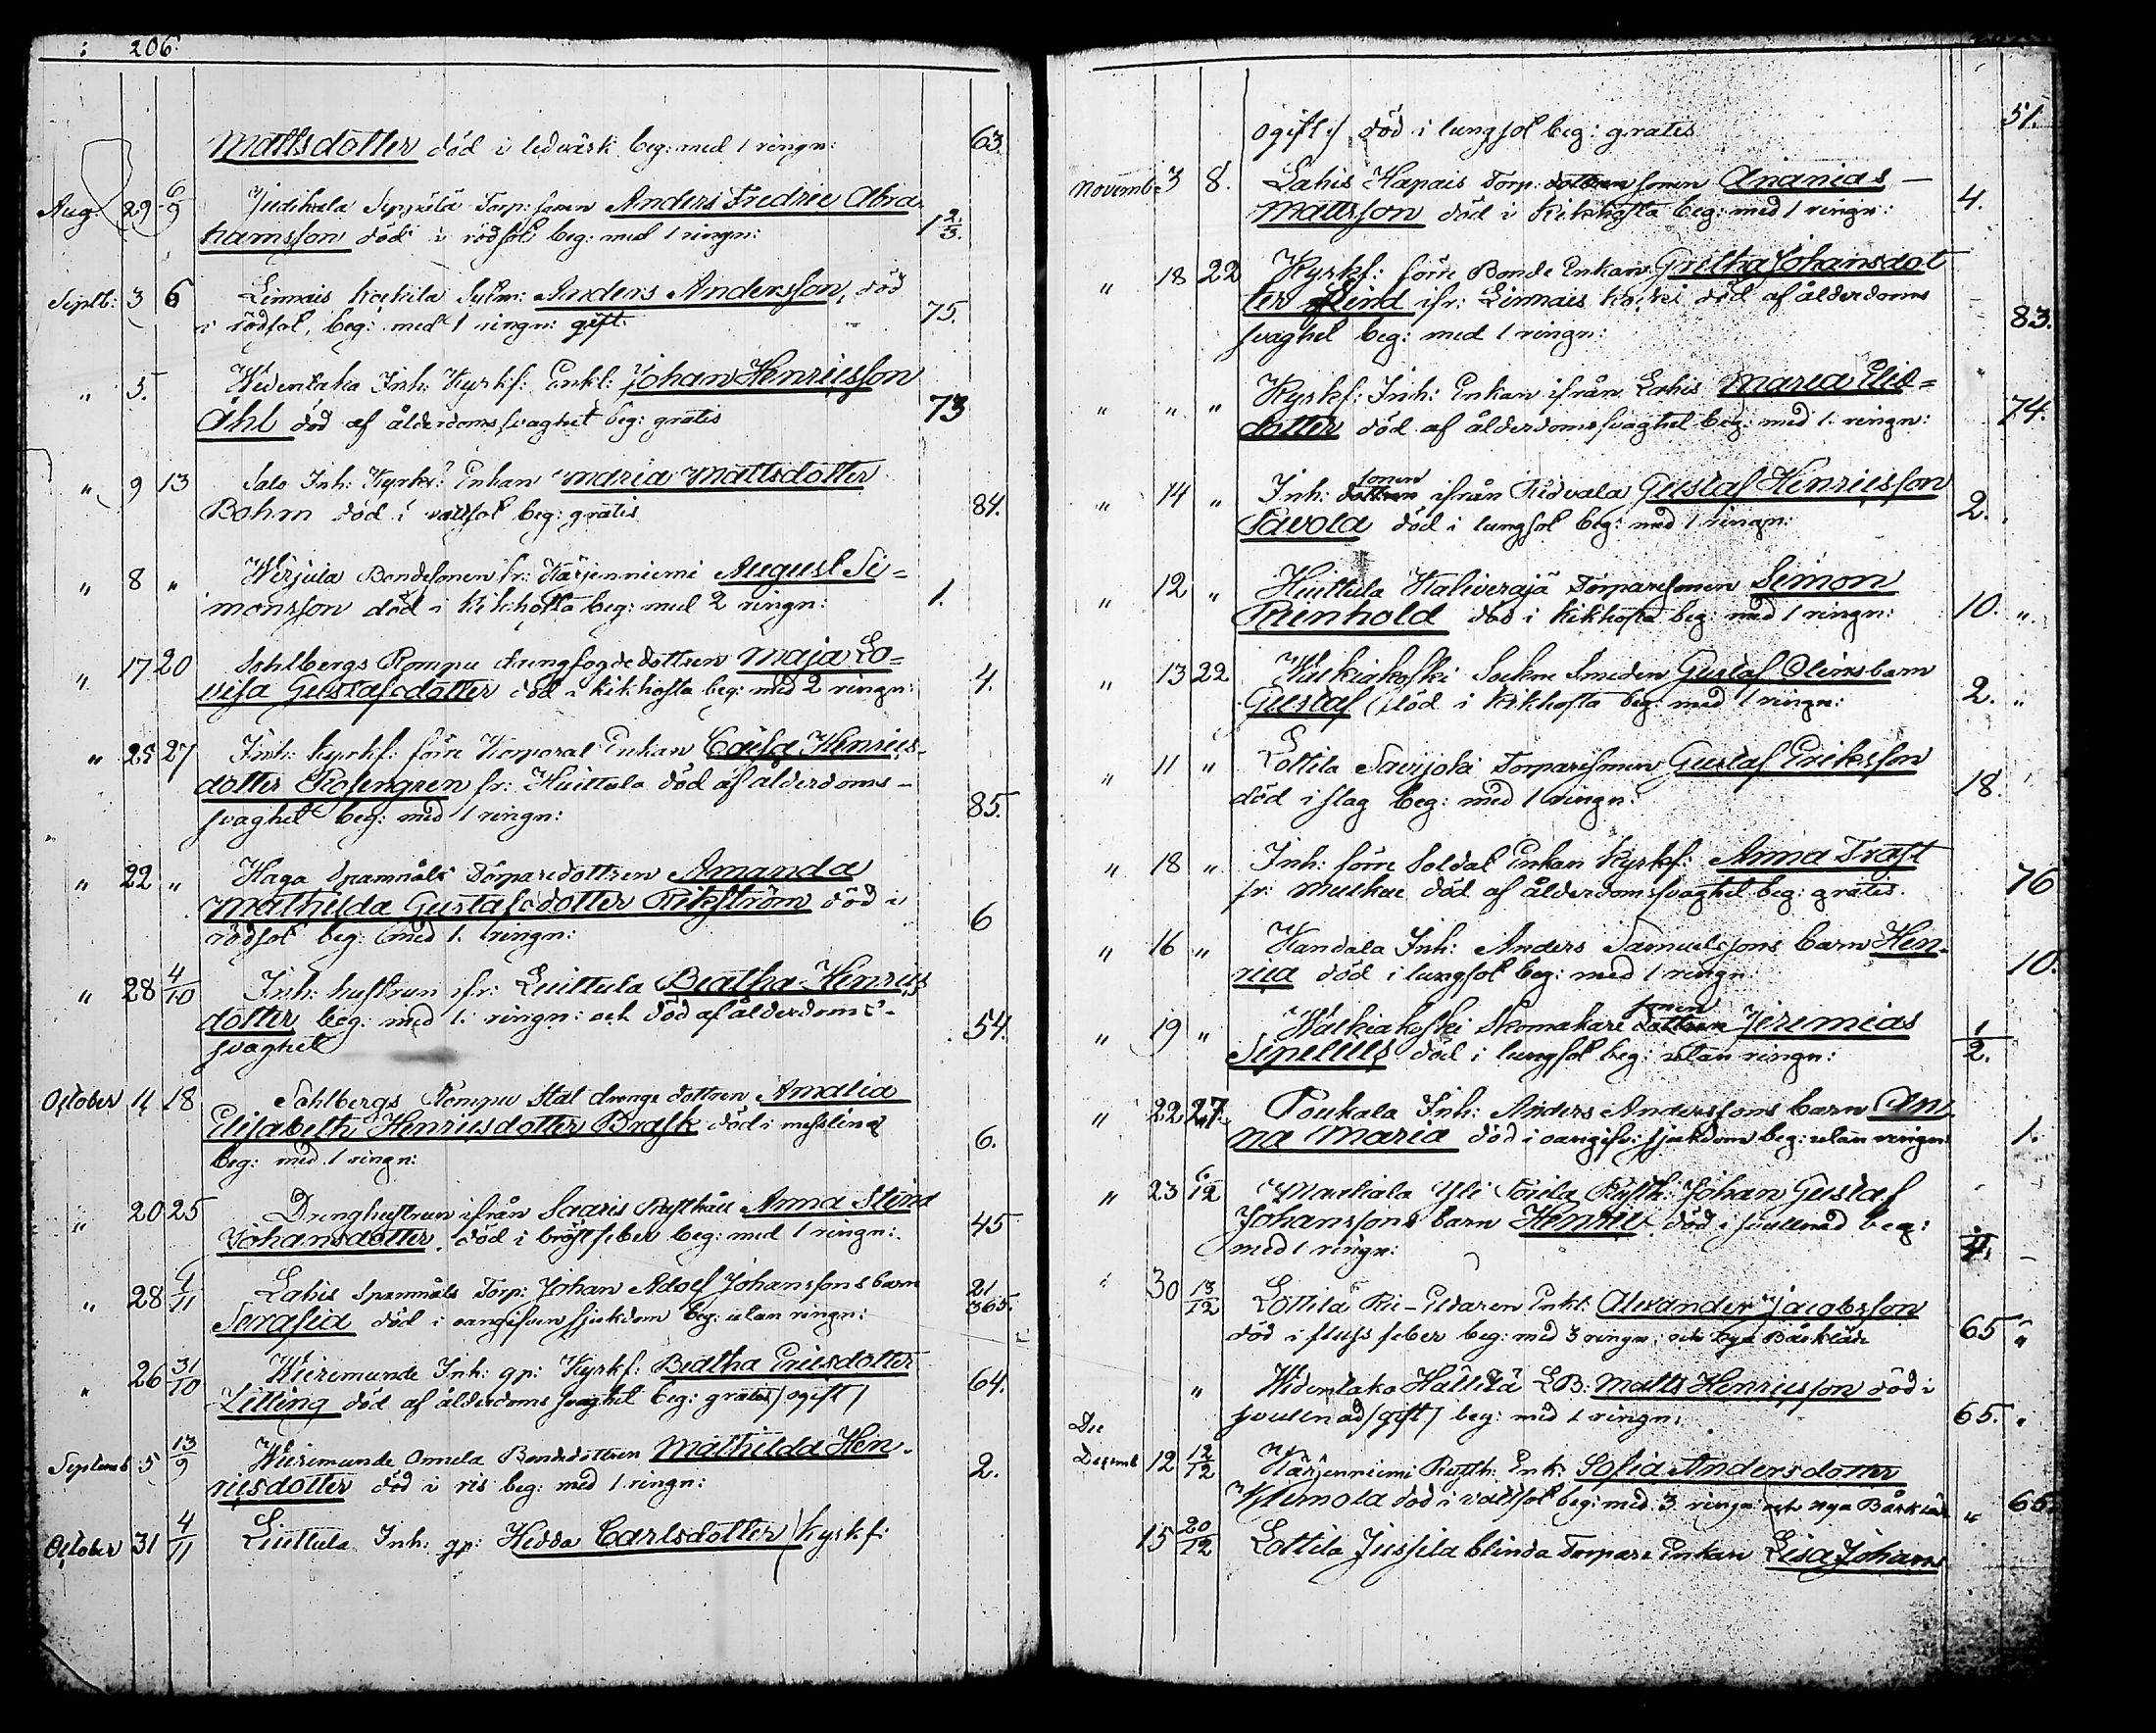 206.
Mattsdotter död i ledvärk beg: med 1 ringn: 63.
Aug: 29 6/9 Judikala Seppälä Torp: sonen Anders Fredric Abra-
hamsson död i rödsot beg: med 1 ringn: 1 2/3.
Septb: 3 6 Linnais Kockila Sytm: Anders Andersson, död
i rödsot, beg: med 1 ringn: gift. 75.
" 5. Widenlaka Inh: Kyrkf: Enkl: Johan Henricsson
Åhl död af ålderdomssvaghet beg: gratis 73
" 9 13 Salo Inh: Enkan Maria Mattsdotter
Bohm död i vattsot beg: gratis 84.
" 8 " Wirjula Bondesonen fr: Kärjenniemi August Si=
monsson död i Kikhosta beg: med 2 ringn: 1.
" 17 20 Sohlbergs Rompu drengfogde dottren Maja Lo=
visa Gustafsdotter död i kikhosta beg: med 2 ringn: 4.
" 25 27 Inh: kyrkf: förre Korporal Enkan Caisa Henrics-
dotter Rosengren fr: Huittula död af ålderdoms-
svaghet beg: med 1 ringn: 85.
" 22 " Haga Spannåls Torparedottren Amanda
Mathilda Gustafsdotter Rikström död i
rödsot beg: med 1. ringn: 6
" 28 4/10 Inh: hustrun ifr: Luittula Beatha Henrics
dotter beg: med 1. ringn: och död af ålderdoms-
svaghet 54.
October 14 18 Sohlbergs Rompu Stal drengs dottren Amalia
Elisabeth Henricsdotter Brask död i messling
beg: med 1 ringn: 6.
" 20 25 Drenghustrun ifrån Saaris Rusthåll Anna Stina
Johansdotter död i bröstfeber beg: med 1 ringn: 45
" 28 4/11 Lahis Spannåls Torp: Johan Adolf Johanssons barn
Serafia död i oangifven sjukdom beg: utan ringn: 21/365.
" 26 31/10 Wieremunde Inh: gp: Kyrkf: Beatha Ericsdotter
Litting död af ålderdoms svaghet beg: gratis /ogift/ 64.
Septemb 5 13/9 Wieremunde Annila Bondedottren Mathilda Hen-
ricsdotter död i ris beg: med 1 ringn: 2.
October 31 4/11 Luttula Inh: gp: Hedda Carlsdotter /kyrkf:
ogift:/ död i lungsot beg: gratis 51.
Novembr 3 8. Lahis Hapais Torp: sonen Ananias
Mattsson död i Kikhosta beg: med 1 ringn: 4.
" 18 22 Kyrkf: förre Bonde Enkan Gretha Johansdot
ter Lind ifr: Linnais Kocki död af ålderdoms
svaghet beg: med 1 ringn: 83.
" " " Kyrkf: Inh: Enkan ifrån Lahis Maria Elis=
dotter död af ålderdomssvaghet beg: med 1. ringn: 74.
" 14 " Inh: sonen ifrån Ridvala Gustaf Henricsson
Savola död i lungsot beg: med 1 ringn: 2.
" 12 " Huittula Kaliveraja Torparesonen Simon
Reinhold död i Kikhosta beg: med 1 ringn: 10. "
" 13 22 Walkiakoski Sockne Smeden Gustaf Olins barn
Gustaf död i Kikhosta beg: med 1 ringn: 2. "
" 11 " Lottila Savijoki Torparesonen Gustaf Eriksson
död i slag beg: med 1 ringn: 18.
" 18 " Inh: förre Soldat Enkan Kyrkf: Anna Trast
fr: Muskae död af ålderdomssvaghet beg: gratis 76
" 16 " Kandala Inh: Anders Samuelssons barn Hen-
rica död i lungsot beg: med 1 ringn: 10.
" 19 " Walkiakoski Skomakare sonen Jeremias
Sipelius död i lungsot beg: utan ringn: 1/2.
" 22 27. Roukala Inh: Anders Anderssons barn An-
na Maria död i oangifv: sjukdom beg: utan ringn: 1.
" 23 6/12 Mackiala Yli Rusth: Johan Gustaf
Johanssons barn Henric död i svullnad beg:
med 1 ringn:
" 30 13/12 Lottila Enkl: Alexander Jacobsson
död i fluss feber beg: med 3 ringn: och nya Bårkläde 65 "
" Widenlaka Hällilä LB: Matts Henricsson död i
svullnad /gift/ beg: med 1 ringn: 65. "
Dec
Decemb 12 12/12 Kärjenniemi Rusth: Enk: Sofia Andersdotter
Klemola död i vattsot beg: med 3 ringn: och nya Bårkläde " 65
15 20/12 Lottila Jussila blinda Torpare Enkan Lisa Johans